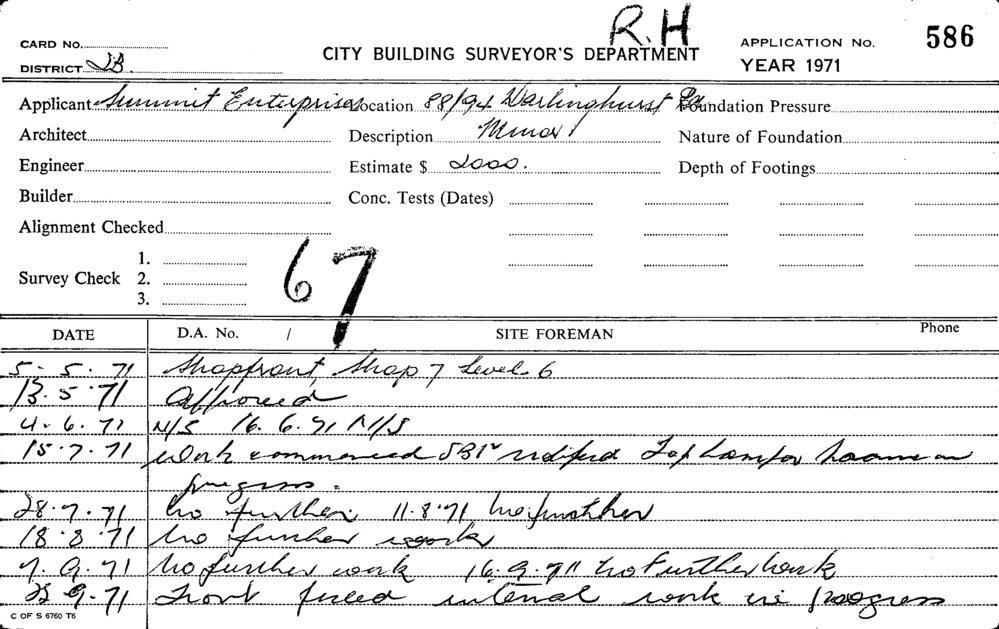 R.H
CARD No.
CITY BUILDING SURVEYOR'S DEPARTMENT
APPLICATION No. 586
DISTRICT
YEAR 1971
Applicant Summit Enterprises Location 88/94 Darlinghurst Rd Foundation Pressure
Architect Description Minor Nature of Foundation
Engineer Estimate $ 2000. Depth of Footings
Builder Conc. Tests (Dates)
Alignment Checked
1.
Survey Check 2.
3.
67
DATE D.A. No. / SITE FOREMAN Phone
5. 5. 71 Shopfront, Shop 7 Level 6
13.5.71 Approved
4.6.71 N/S 16.6.71 N/S
15.7.71 Work commenced
progress.
28.7.71 No further. 11.8.71 No further
18.8.71 No further work
7.9.71 No further work 16.9.71 No Further work
9.71 Front fixed internal work in progress
C OF S 6760 T6